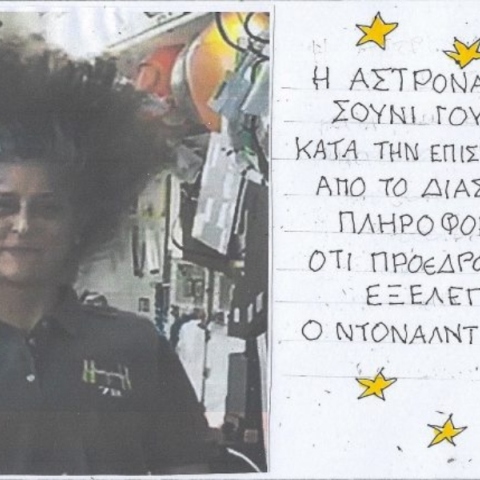 Η ΑΣΤΡΟΝΑ
ΣΟΥΝΙ ΓΟΥ
ΚΑΤΑ ΤΗΝ ΕΠΙΣ
ΑΠΟ ΤΟ ΔΙΑΣ
ΠΛΗΡΟΦΟ
ΟΤΙ ΠΡΟΕΔΡΟ
ΕΞΕΛΕΓ
Ο ΝΤΟΝΑΛΝΤ